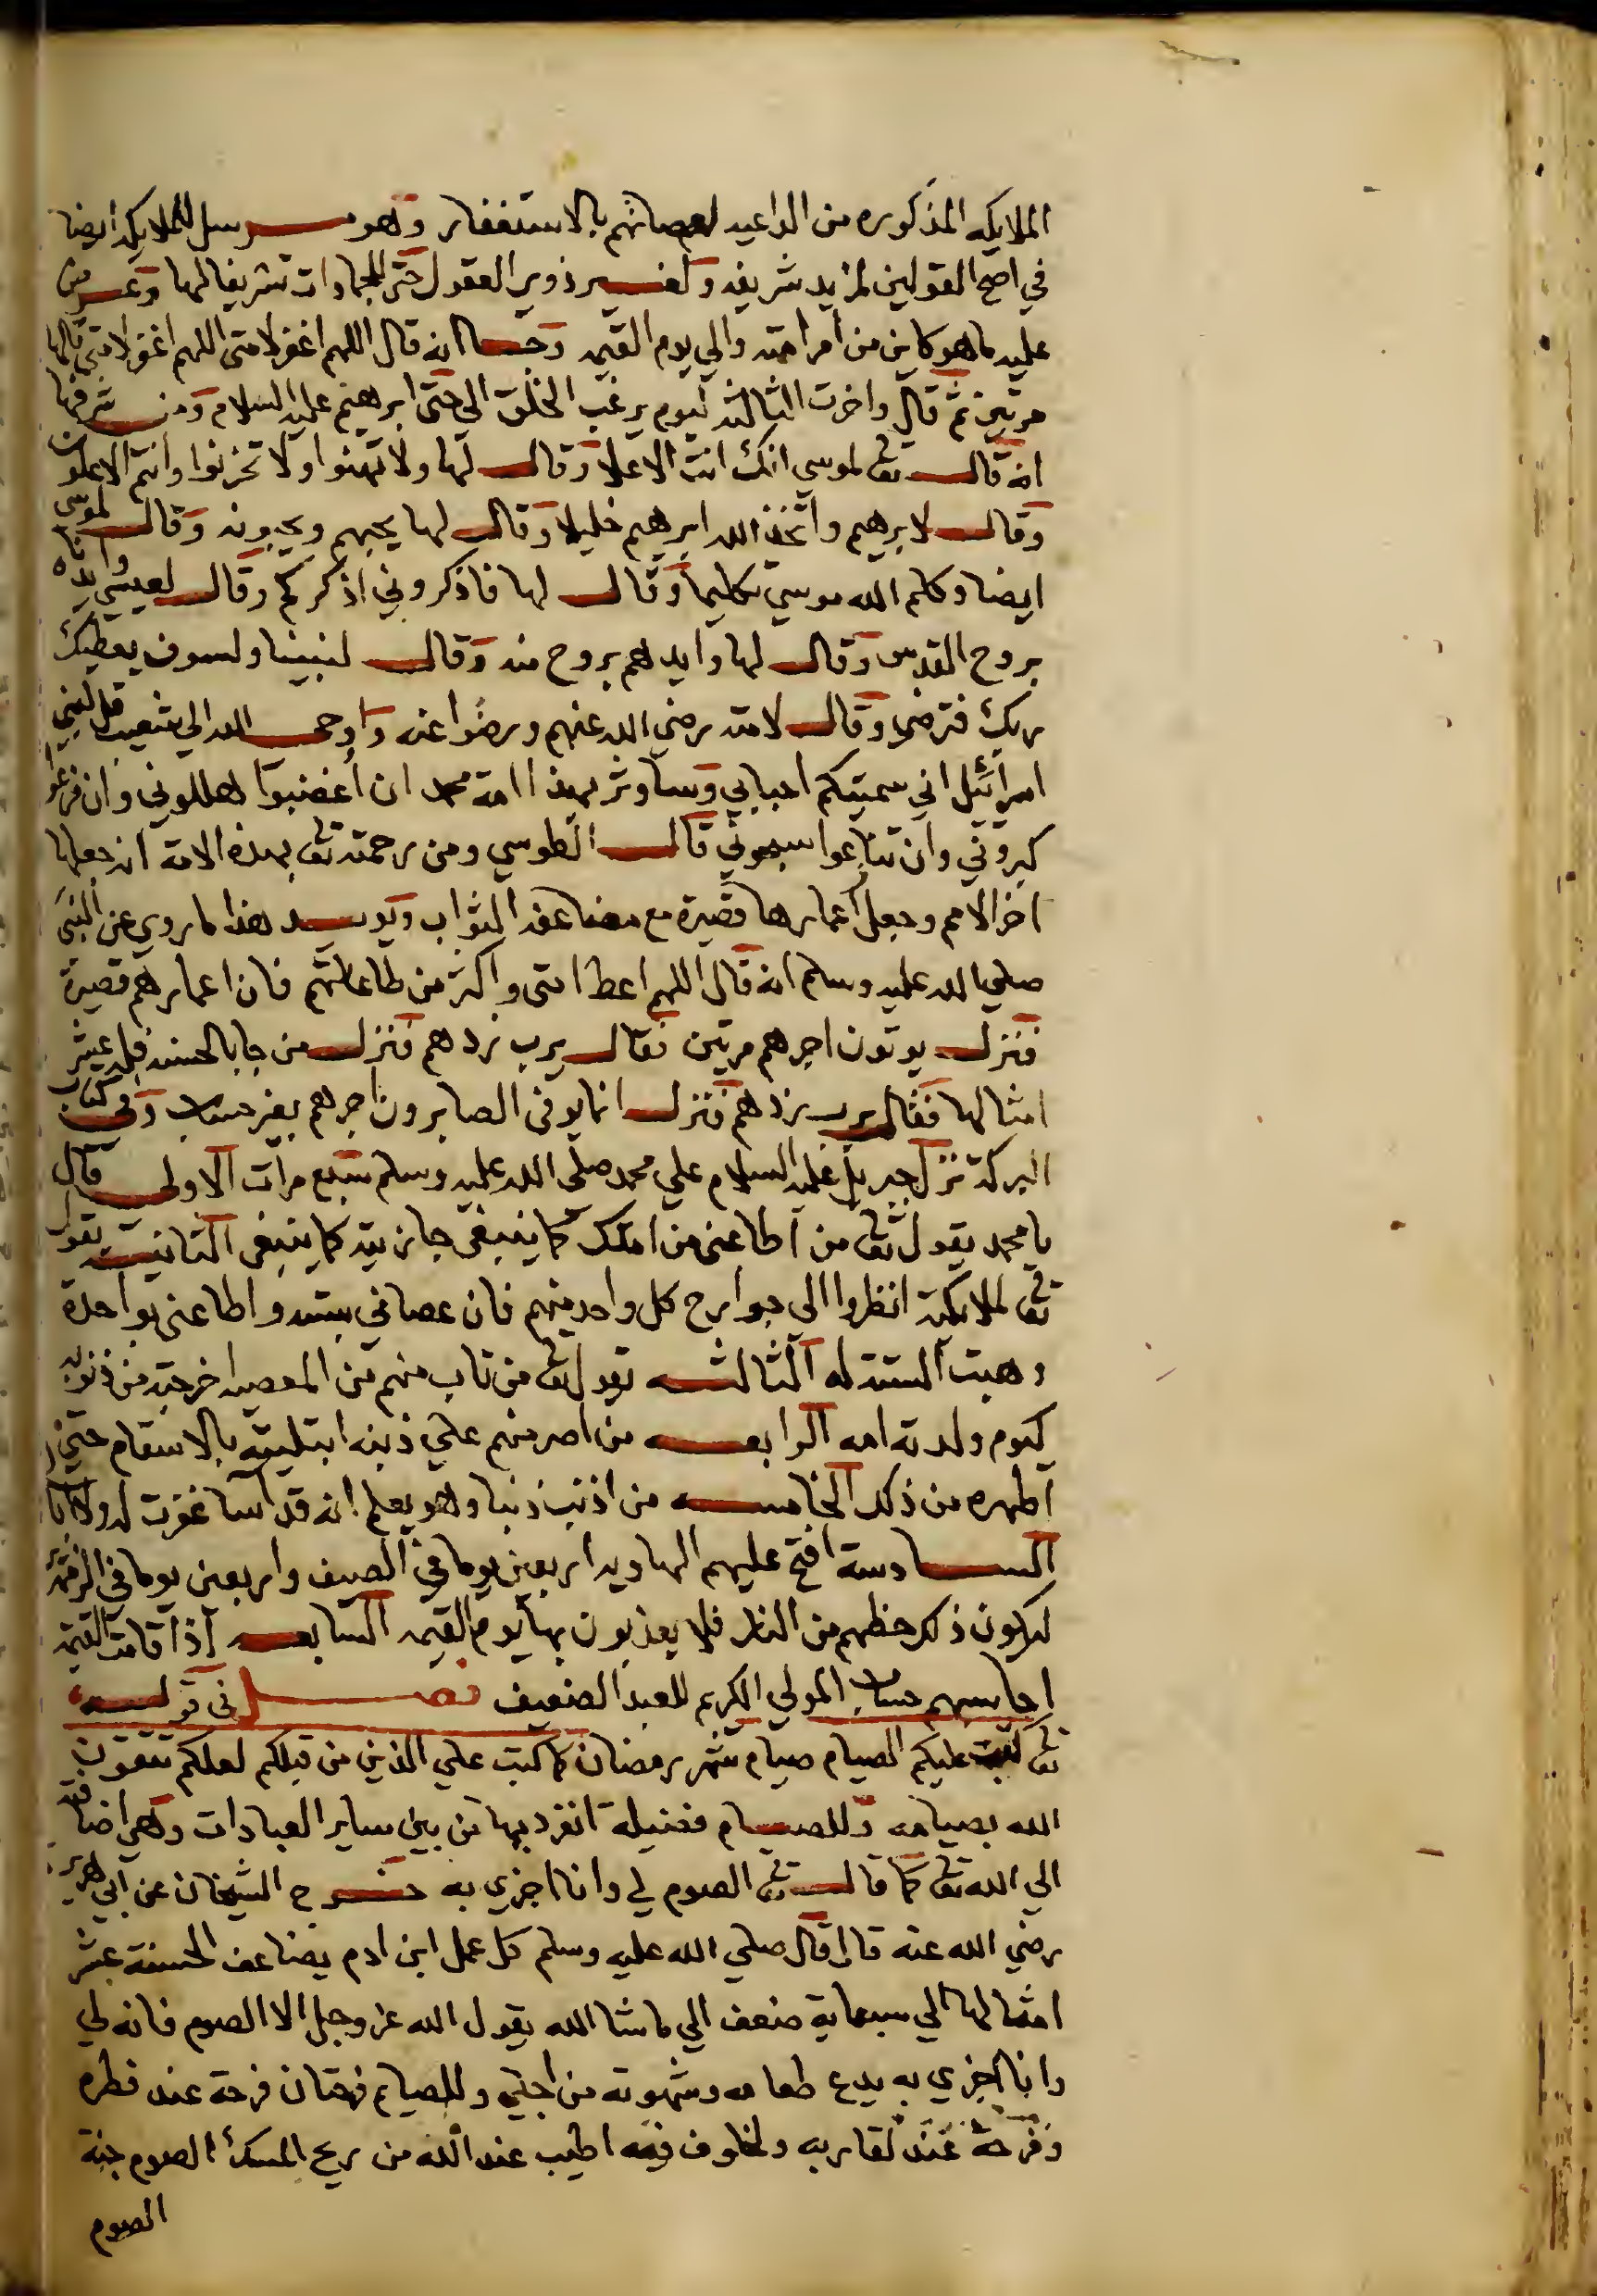 الملايكه المذكوره من الداعيد لعصاتهم بالاستغفار وهو مرسل للملايكه ايضا
في اصح القولين لمزيد شريفه ولغير ذوي العقول حتى للجمادات تشريفا لها وعرض
عليه ما هو كاين من امر امته والي يوم القيمه وجا انه قال اللهم اغفر لامتى اللهم اغفر لامتي قالها
مرتين ثم قال واخرت الثالثه ليوم يرغب الخلق الي حتى ابرهيم عليه السلام ومن شرفها
انه قال تعـ لموسى انك انت الاعلا وقال لها ولا تهنوا ولا تحزنوا وانتم الاعلون
وقال لابرهيم واتخذ الله ابرهيم خليلا وقال لها يحبهم ويحبونه وقال لموسى
ايضا وكلم الله موسي تكليما وقال لها فاذكروني اذكركم وقال لعيسى وايدناه
بروح القدس وقال لها وايدهم بروح منه وقال لنبينا ولسوف يعطيك
ربك فترضى وقال لامته رضي الله عنهم ورضوا عنه واوحى الله الي شعيب قل لبني
اسرائيل اني سميتكم احبابي وساوثر بهذا امة محمد ان اغضبوا هللوني وان فزعوا
كبروني وان تنازعوا سبحوني قال الطوسي ومن رحمته تعـ بهذه الامة ان جعلها
اخر الامم وجعل اعمارها قصيرة مع مضاعفة الثواب ويويد هذا ما روي عن النبي
صلي الله عليه وسلم انه قال اللهم اعط امتى واكثر من طاعاتهم فان اعمارهم قصيرة
فنزل يوتون اجرهم مرتين فقال يرب زدهم فنزل من جا بالحسنه فله عشر
امثالها فقال يرب زدهم فنزل انما يوفى الصابرون اجرهم بغير حساب وفي كتاب
البركة نزل جبريل عليه السلام علي محمد صلى الله عليه وسلم سبع مرات الاولى قال
يا محمد يقول تعـ من اطاعني من امتك كما ينبغي جازيته كما ينبغي الثانية يقول
تعـ لملايكته انظروا الى جوارح كل واحد منهم فان عصاني بسته واطاعني بواحدة
وهبت السته له الثالثه يقول تعـ من تاب منهم من المعصيه اخرجته من ذنوبه
كيوم ولدته امه الرابعه من اصر منهم علي ذنبه ابتليته بالاسقام حتى
اطهره من ذلك الخامسه من اذنب ذنبا وهو يعلم انه قد اسا غفرت له ولا ابالي
السادسة افتح عليهم الهاويه اربعين يوما في الصيف واربعين يوما في
ليكون ذلك حظهم من النار فلا يعذبون بها يوم القيمه السابعه اذا قامت القيمه
احاسبهم حساب المولي الكريم للعبد الضعيف فصل في قوله
تعـ كتب عليكم الصيام صيام شهر رمضان كما كتب علي الذين من قبلكم لعلكم تتقون
الله بصيامه وللصيام فضيلة انفرد بها من بين ساير العبادات وهي اضافته
الي الله تعـ كما قال تعـ الصوم لي وانا اجزي به خرج الشيخان عن ابي هريره
رضي الله عنه قال قال صلي الله عليه وسلم كل عمل ابن ادم يضاعف الحسنة بعشر
امثالها الي سبعماية ضعف الي ما شا الله يقول الله عز وجل الا الصوم فانه لي
وانا اجزي به يدع طعامه وشهوته من اجلي وللصايم فرحتان فرحة عند فطره
وفرحة عند لقا ربه ولخلوف فيه اطيب عند الله من ريح المسك الصوم جنة
الصوم